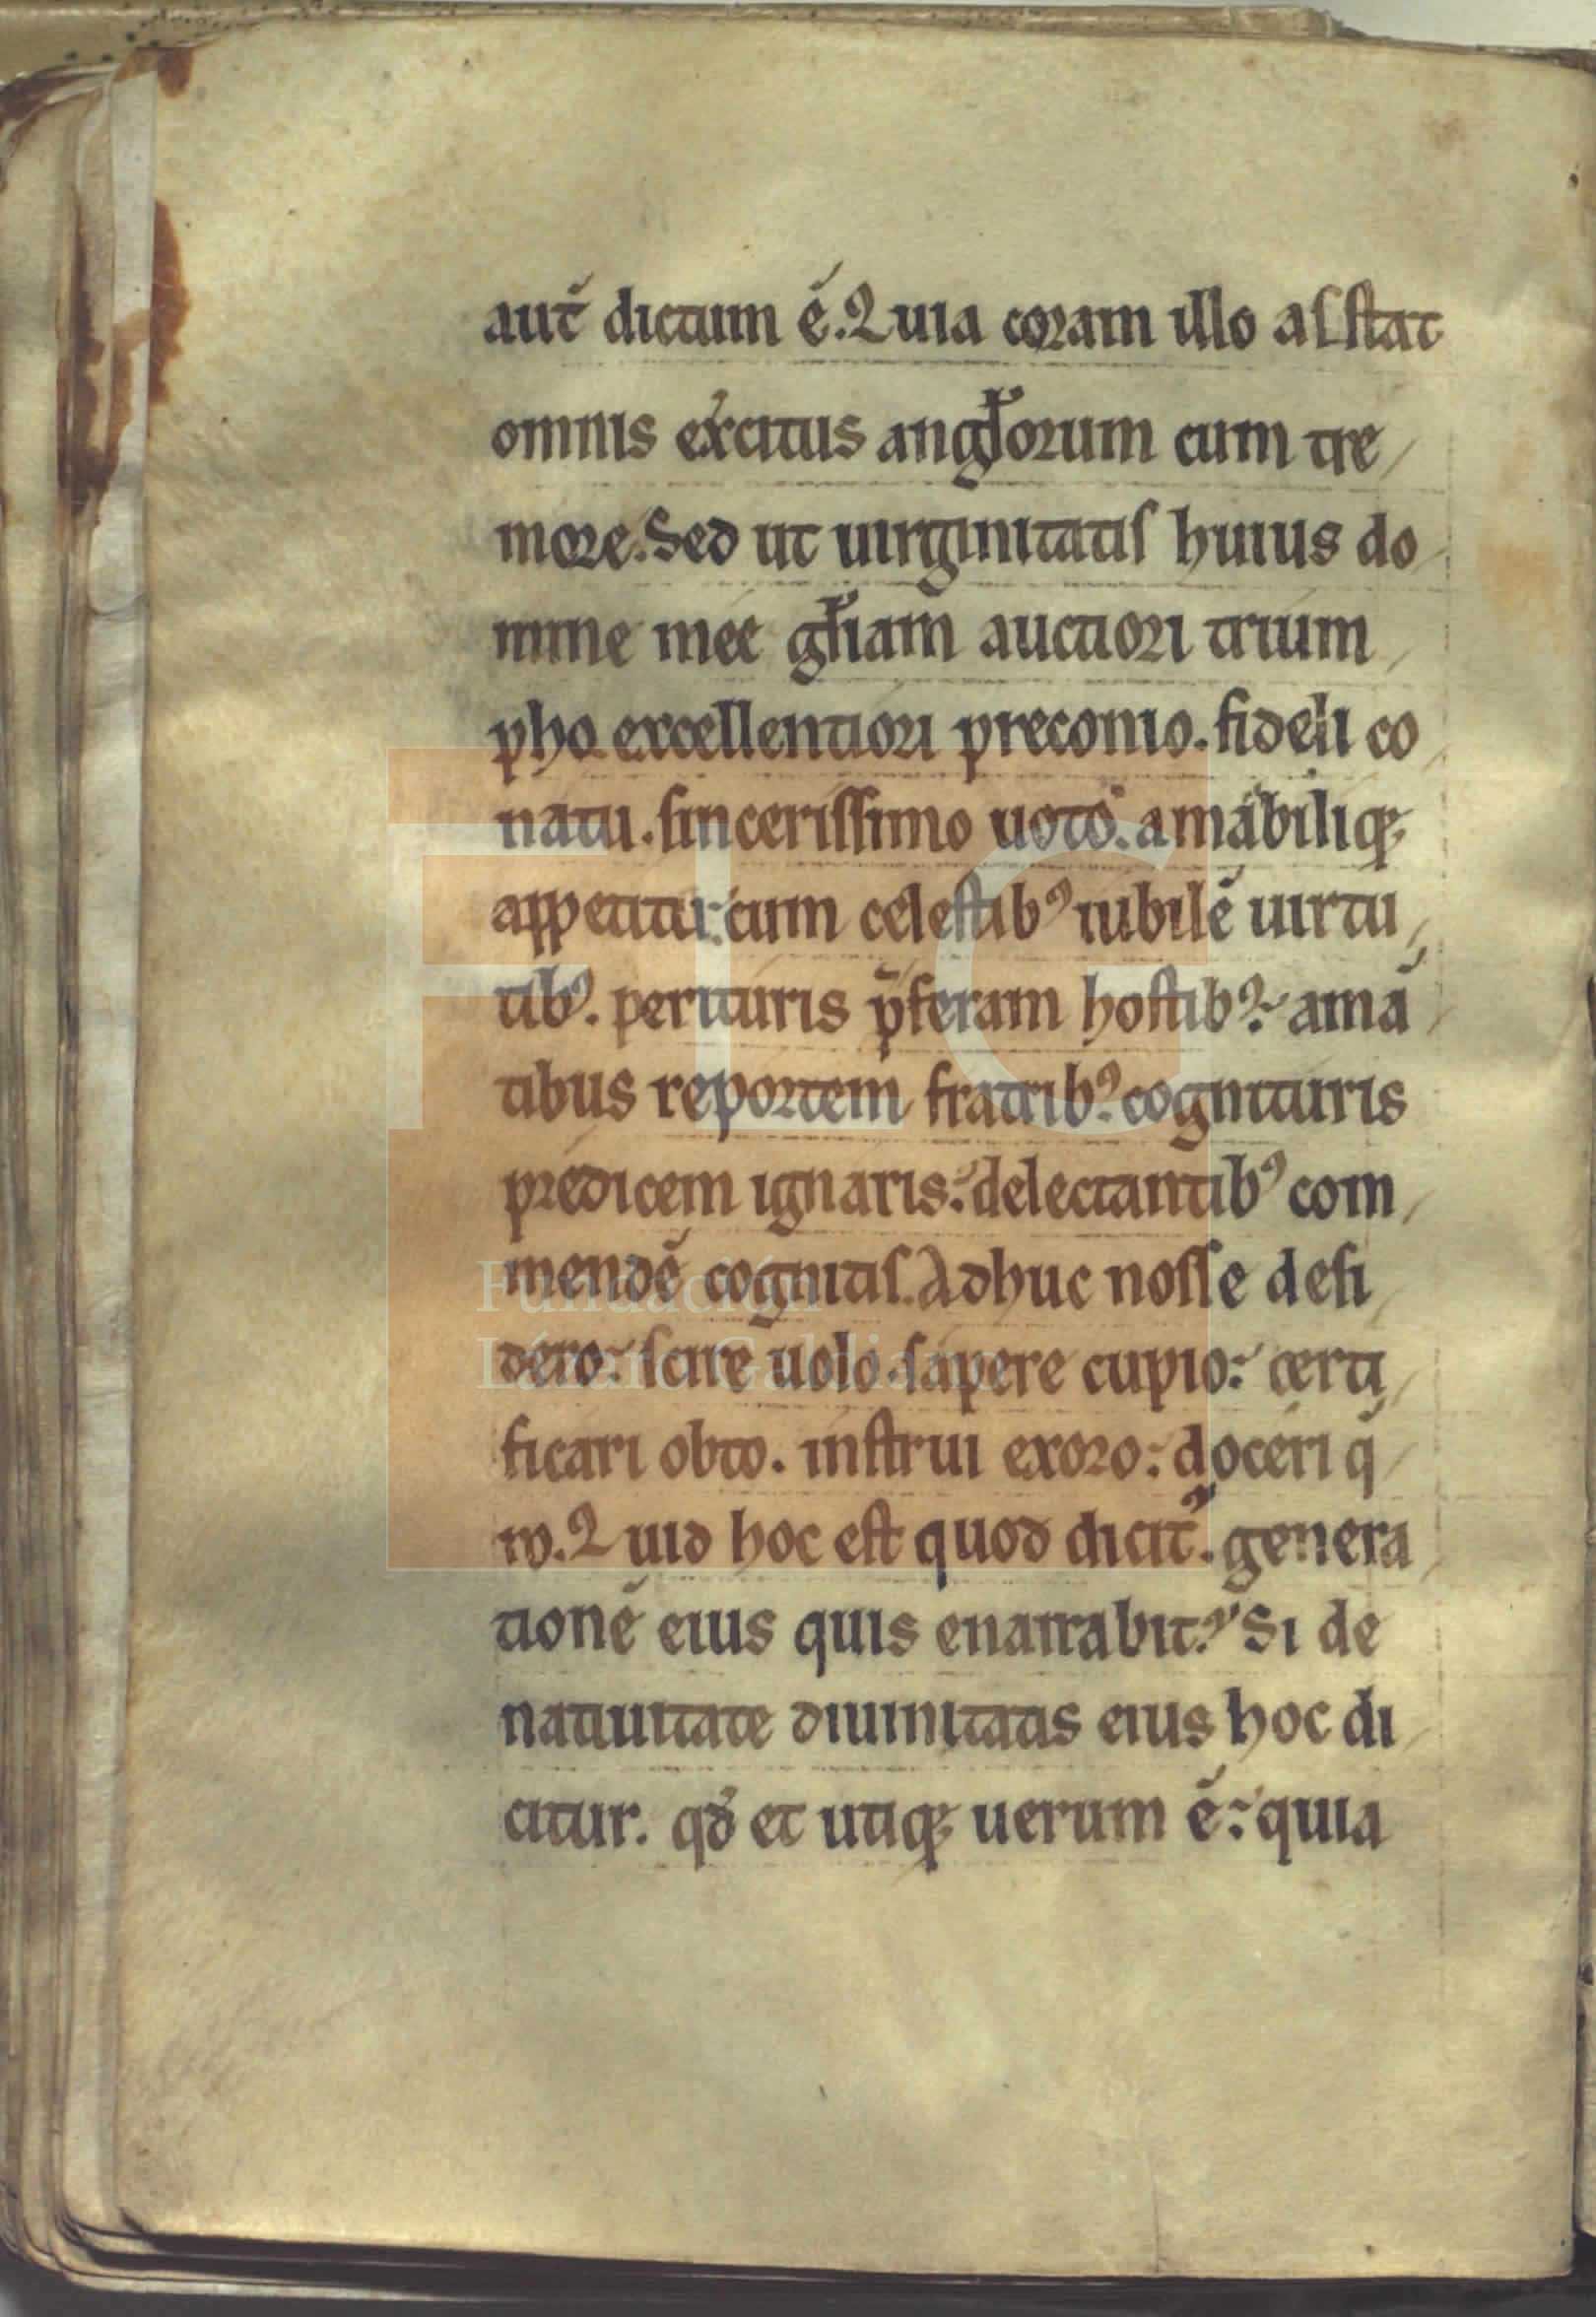 aut̄ dictum ē. Quia coram illo asſtat
omnis ex̾citus angl̄orum cum tre/
more. Sed ut uirginitatiſ huius do/
mine meę gl̄iam auctiori trium/
pho excellentiori preconio. fideli co/
natu. ſinceriſſimo uoto. amabiliq;
appetitu: cum celeſtibꝰ iubilē uirtu/
tibꝰ. perituris p̄feram hoſtibꝰ: amā/
tibus reportem fratribꝰ: cognituris
predicem ignaris: delectantibꝰ com/
mendē cognitiſ. Adhuc noſſe deſi/
dero: ſcire uolo. ſapere cupio: certi/
ficari obto. inſtrui exoro: doceri q̄/
ro. Quid hoc eſt quod dicit᷑. genera/
tionē eius quis enarrabit? Si de
natiuitate diuinitatis eius hoc di/
citur. qđ et utiq; uerum ē: quia
Fundación
Lázaro Galdiano
FLG